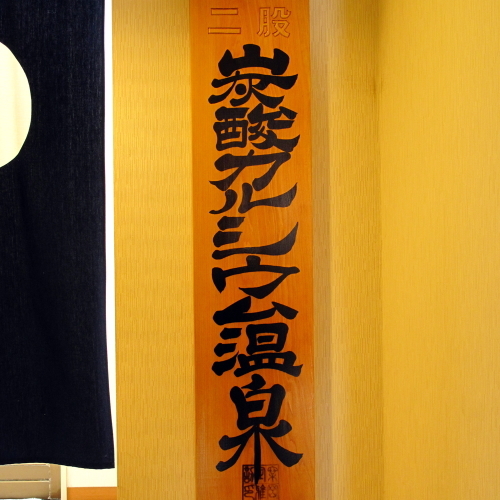 二股
炭酸カルシウム温泉